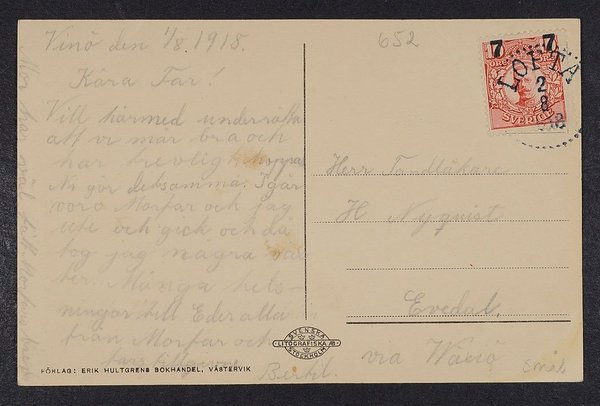 Vinö den 1/8 1918.
Kära Far!
Vill härmed underrätta
att vi mår bra och
har trevligt hoppas
Ni gör detsamma. Igår
voro Morfar och jag
ute och gick och då
tog jag några
Många häls-
ningar till Eder alla
från Morfar och
Bertil.
652
7 7
SVERIGE
LOFTA
2
8
Herr Tandläkare
H Nyquist
Evedal.
via Växiö
Smål
SVENSKA
LITOGRAFISKA AB
STOCKHOLM
FÖRLAG: ERIK HULTGRENS BOKHANDEL, VÄSTERVIK